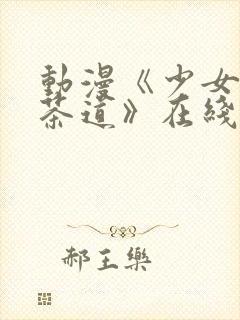 動漫《少女
茶道》在綫
郝王樂